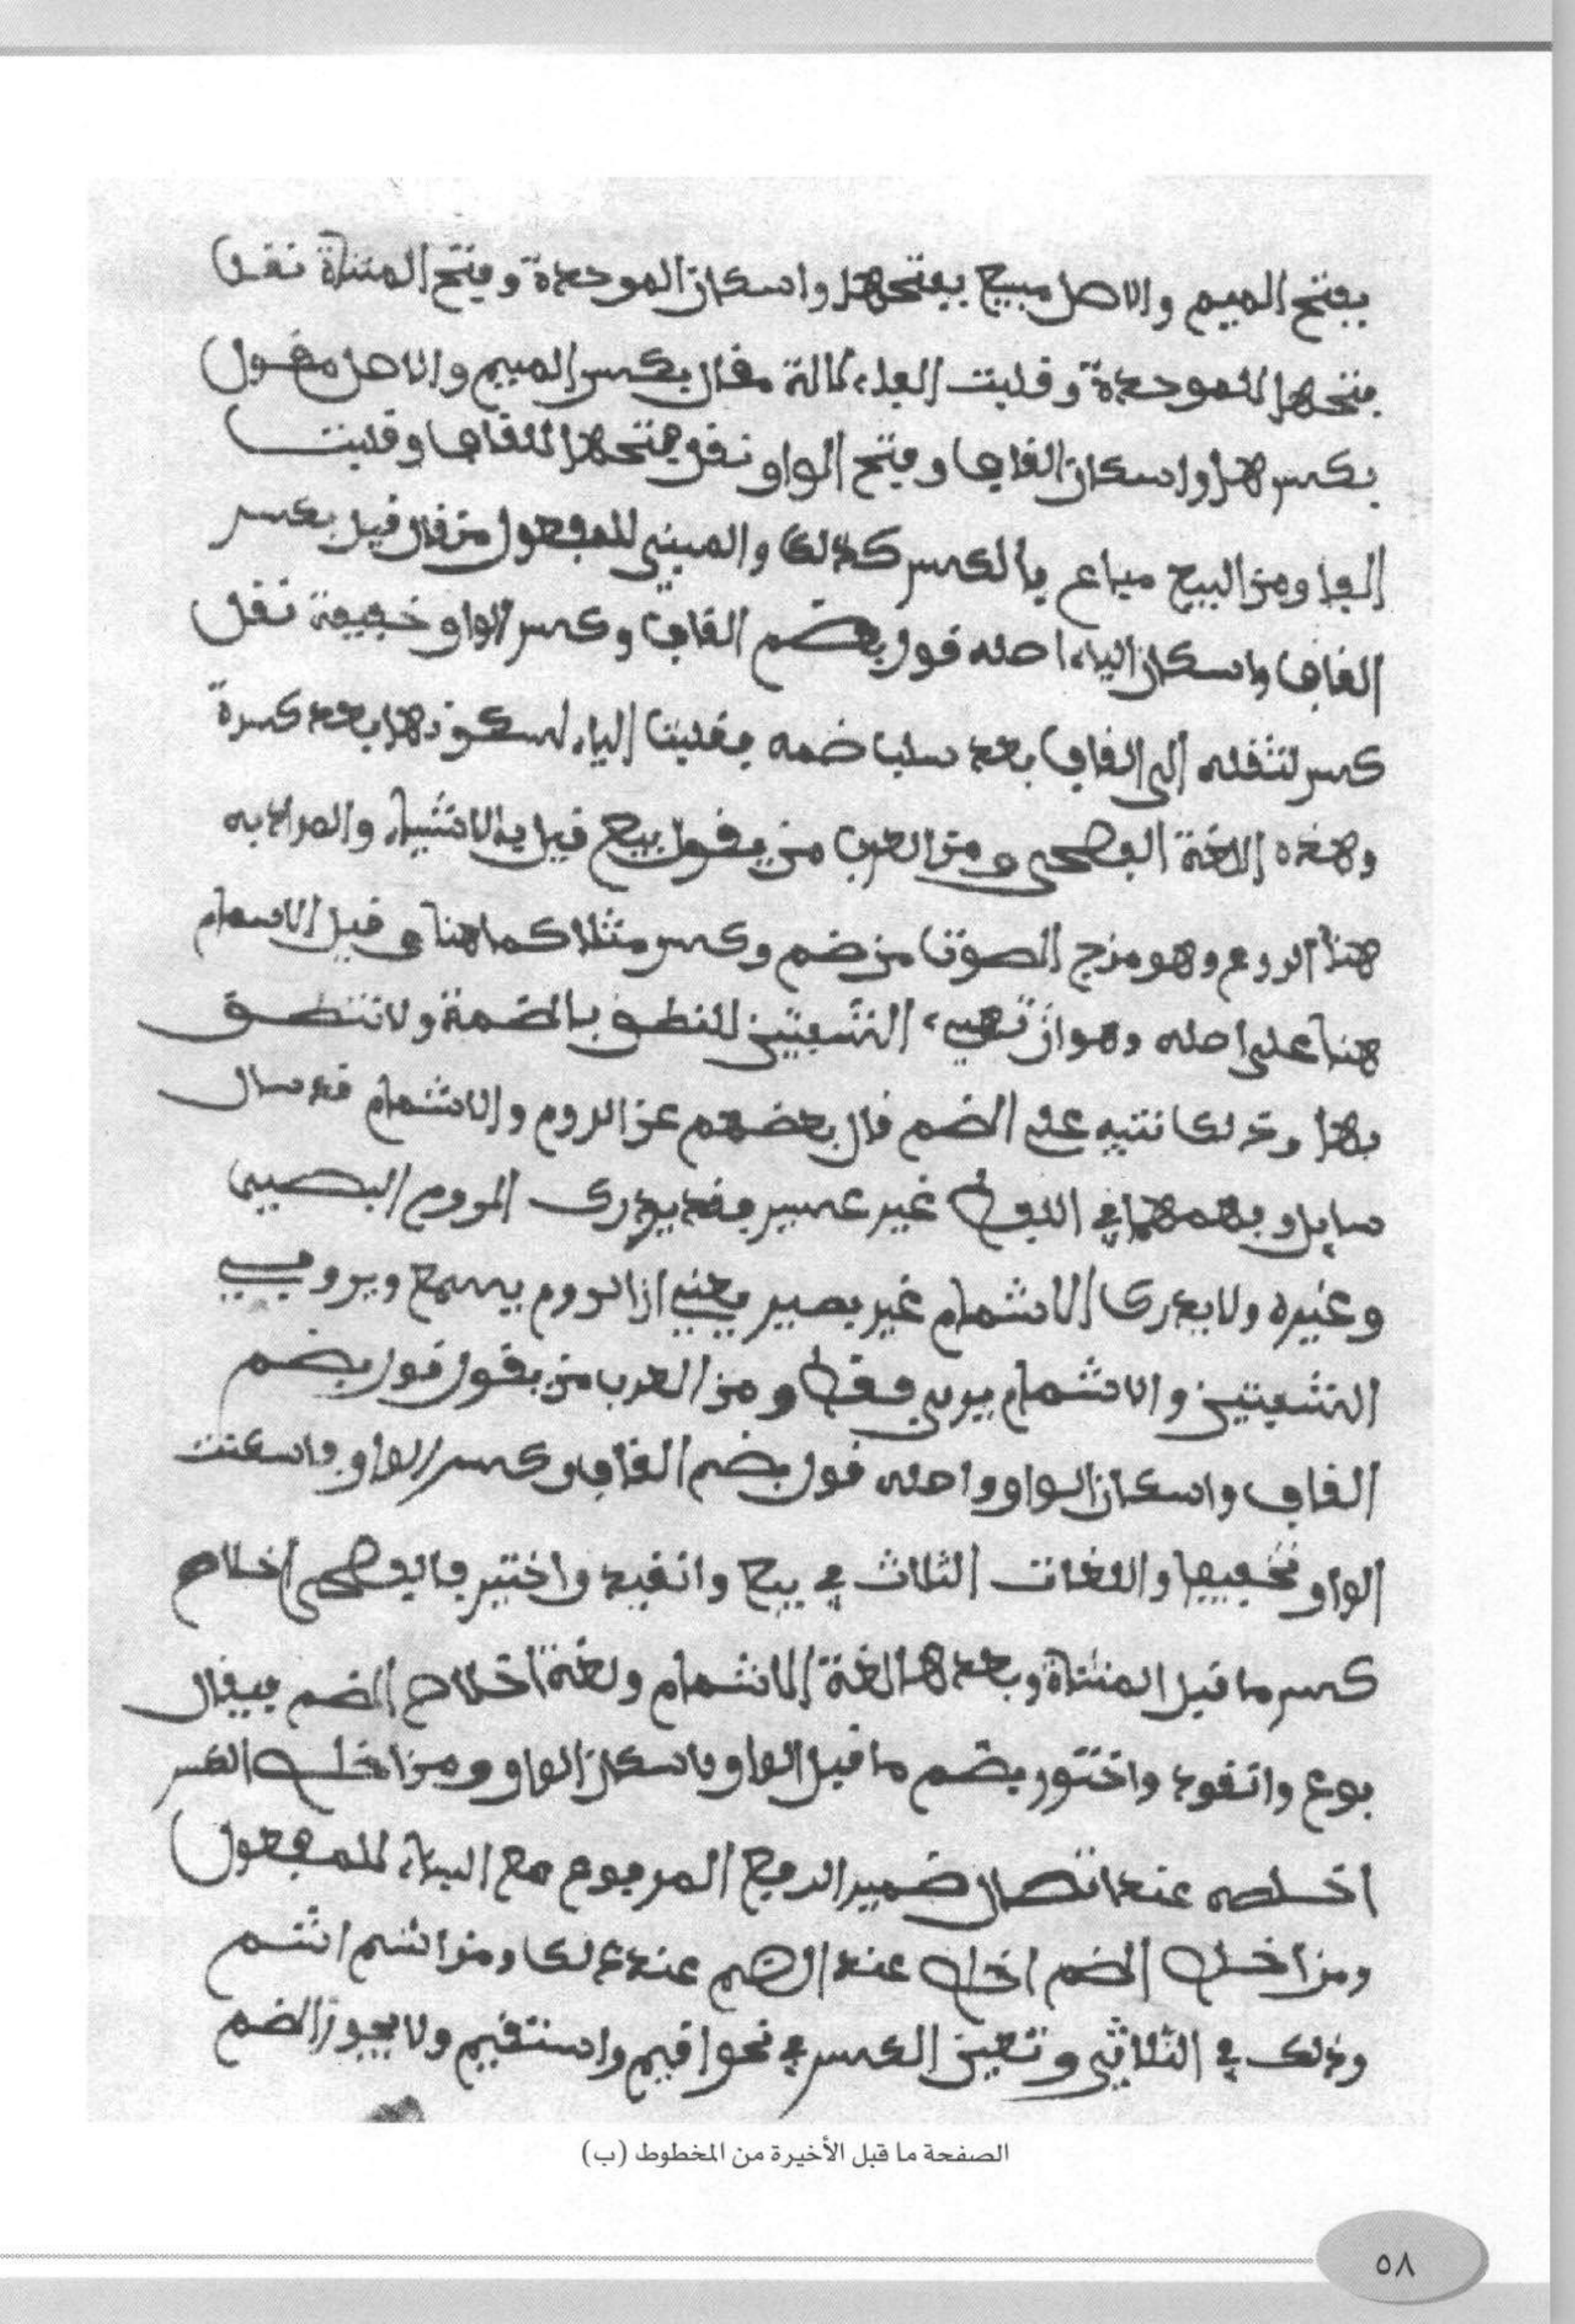 بفتح الميم والاصل مبيع بفتحها واسكان الموحدة وفتح المثناة نقل
فتحها للموحدة وقلبت الفا والالة مقال بكسر الميم والاصل مقول
بكسرها واسكان القاف وفتح الواو نقل فتحها للقاف وقلبت
الفا ومن البيع مباع بالكسر كذلك والمبني للمفعول من قال قيل بكسر
القاف واسكان الياء اصله قول بضم القاف وكسر الواو خفيفة نقل
كسر لثقله الى القاف بعد سلب ضمه فقلبت الياء لسكونها بعد كسرة
وهذه اللغة الفصحى ومن العرب من يقول بيع قيل بالاشباه والمراد به
هنا الروم وهو مزج الصوت من ضم وكسر مثلا كما هنا وقيل الاشمام
هنا على اصله وهو ان تهيء الشفتين للنطق بالضمة ولا تنطق
بها وذلك تنبيه على الضم قال بعضهم عن الروم والاشمام قد سال
سايل وفهمهما في الذوق غير عسير فقد يدرك الروم البصير
وغيره ولا يدرك الاشمام غير بصير يعني ان الروم يسمع ويرى في
الشفتين والاشمام يرى فقط ومن العرب من يقول قول بضم
القاف واسكان الواو واصله قول بضم القاف وكسر الواو فاسكنت
الواو تخفيفا واللغات الثلاث في بيع وانقيد واختير فالفصحى اخلاص
كسر ما قبل المثناة وبعدها لغة الاشمام ولغة اخلاص الضم فيقال
بوع وانقود واختور بضم ما قبل الواو واسكان الواو ومن اخلص الكسر
اخلصه عند اتصال ضمير الرفع المرفوع مع البناء للمفعول
ومن اخلص الضم اخلص عند الضم عند ذلك ومن اشم اشم
وذلك في الثلاثي وتعين الكسر في نحو اقيم واستقيم ولا يجوز الضم
الصفحة ما قبل الأخيرة من المخطوط (ب)
٥٨